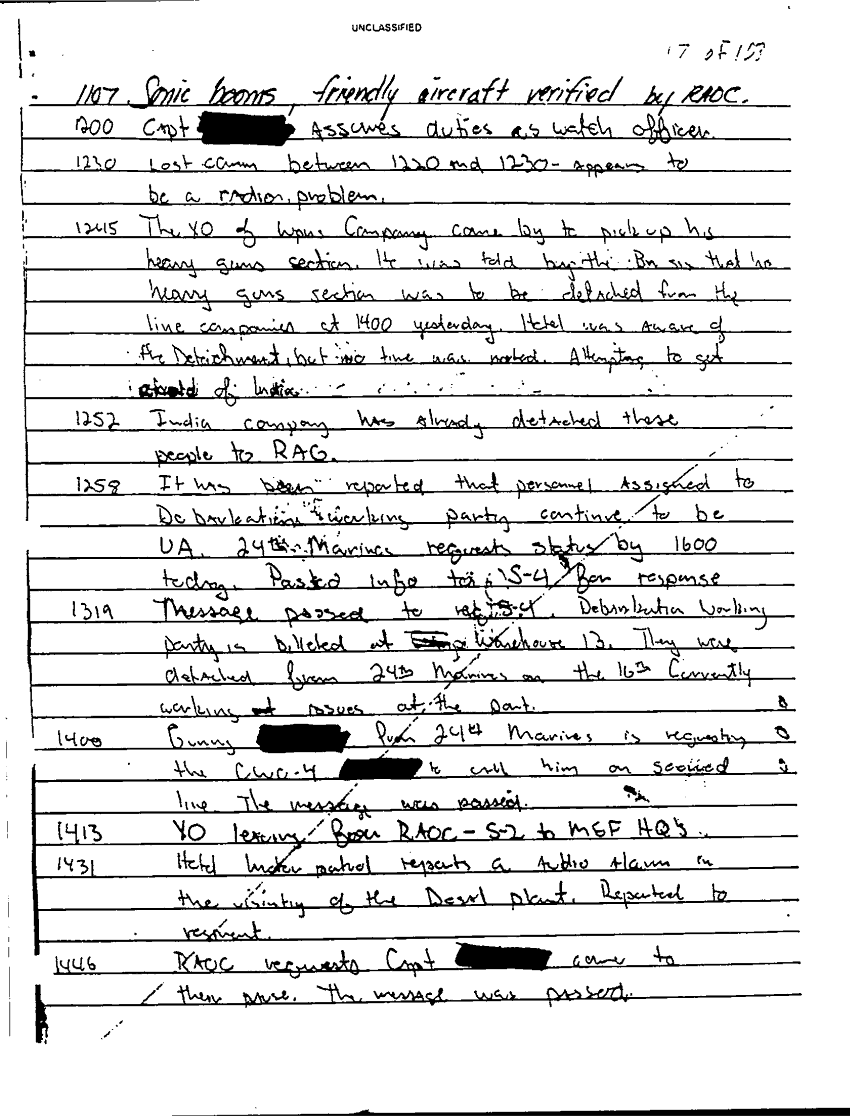 UNCLASSIFIED
17 of 153
1107 Sonic booms, friendly aircraft verified by RAOC.
1200 Capt Assumes duties as watch officer.
1230 Lost comm between 1220 and 1230 - appears to
be a radion problem.
1245 The XO of Wpns Company came by to pick up his
heavy guns section. It was told by the Bn six that he
heavy guns section was to be detached from the
line companies at 1400 yesterday. Hotel was aware of
the Detachment, but no time was noted. Attempting to get
of India.
1252 India company has already detached these
people to RAG.
1258 It has been reported that personnel Assigned to
Debarkation working party continue to be
UA. 24th Marines requests status by 1600
today. Passed info to S-4 for response
1319 Message passed to S-4. Debarkation Working
party is billeted at Warehouse 13. They were
detached from 24th Marines on the 16th Currently
working issues at the port.
1400 Gunny from 24th Marines is requesting
the CWO-4 to call him on secured
line. The message was passed.
1413 XO leaving from RAOC - S-2 to MEF HQ's.
1431 Hotel patrol reports a Audio Alarm in
the visintiy of the Desal plant. Reported to
regiment.
1446 RAOC requests Capt come to
there The message was passed.